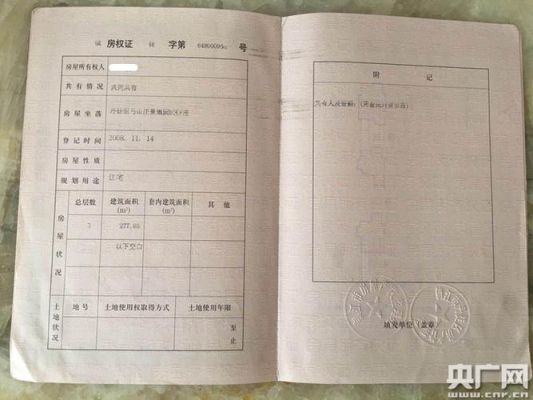 房权证 字第 号
房屋所有权人
共有情况 共同共有
房屋坐落
登记时间 2008. 11. 14
房屋性质
规划用途 住宅
房屋状况
总层数 建筑面积(m²) 套内建筑面积(m²) 其他
3
以下空白
土地状况
地号 土地使用权取得方式 土地使用年限
至
止
附 记
填发单位(盖章)
央广网
www.cnr.cn